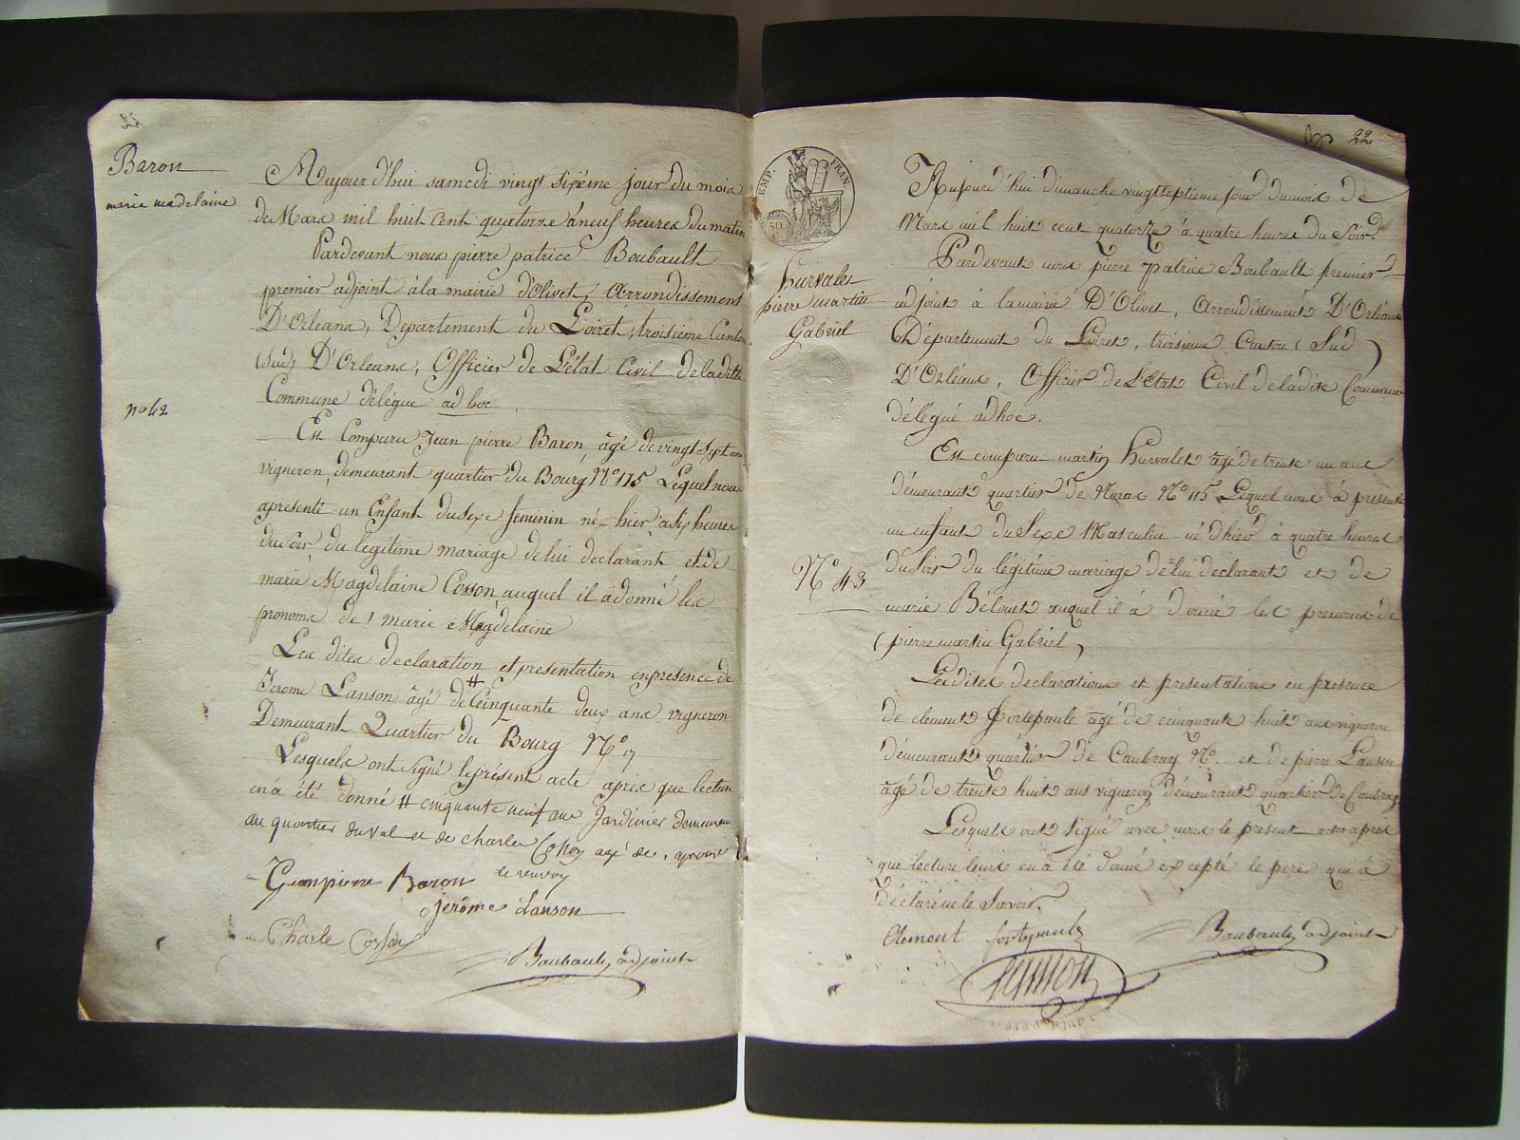 Baron
marie madelaine
Aujour d'hui samedi vingt sixieme jour du mois
de Mars mil huit cent quatorze à neuf heures du matin
Pardevant nous pierre patrice Boubault
premier adjoint à la mairie d'Olivet, Arrondissement
D'Orleans, Departement du Loiret, troisieme Canton
(Sud) D'Orleans, Officier de L'état Civil de la ditte
Commune délégué ad hoc
no 42
Est Comparu Jean pierre Baron, âgé de vingt Sept ans
vigneron, demeurant quartier du Bourg No 175 Lequel nous
a présenté un Enfant du Sexe feminin né hier a six heures
du soir du legitime mariage de lui declarant et de
marie Magdelaine Cosson auquel il a donné les
pronoms de marie Magdelaine
Les dites declaration et presentation en presence de
Jerome Lanson âgé de # Cinquante deux ans vigneron
Demeurant Quartier du Bourg No 17
Lesquels ont signé le présent acte après que lecture
en a été donné # cinquante neuf ans Jardinier demeurant
au quartier du val et de charles Cosson agé de, aprouvé
le renvoy
Jean pierre Baron
Jerôme Lanson
Charle Cosson
Boubault, adjoint
22
EMP. FRAN.
hurvalet
pierre martin
Gabriel
Aujourd'hui dimanche vingt septieme jour du mois de
Mars mil huit cent quatorze à quatre heures du Soir
Pardevant nous pierre patrice Boubault premier
adjoint à la mairie D'Olivet, Arrondissement D'Orléans
Département du Loiret, troisieme Canton (Sud)
D'Orléans, Officier de L'état Civil de la dite Commune
délégué ad hoc.
Est comparu martin hurvalet âgé de trente un ans
demeurant quartier de No 115 Lequel nous à presenté
un enfant du Sexe Masculin né d'hier à quatre heures
No 43
du soir du légitime mariage de lui declarant et de
marie auquel il à donné les prenoms de
(pierre martin Gabriel)
Les dites declaration et presentation en presence
de clement fortepaule âgé de cinquante huit ans vigneron
démeurant quartier de Caubray No. et de pierre Lanson
âgé de trente huit ans vigneron démeurant quartier de Caubray
Lesquels ont signé avec nous le present acte après
que lecture leurs en à été donné excepté le pere qui à
déclaré ne le Savoir.
Clement fortepaule
Boubault, adjoint